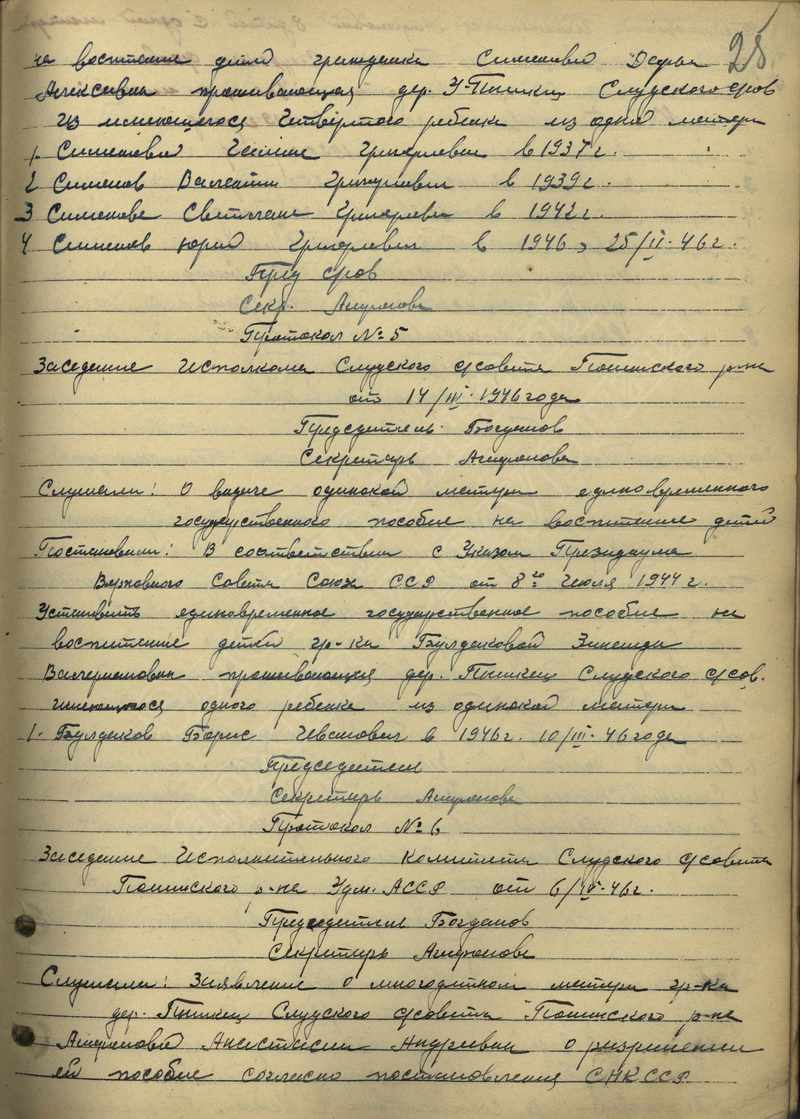 25
на воспитание детей гражданка Симанова Дарья
Алексевна проживающая дер. У-Пышкец Слудского с/сов
из имеющегося четвёртого ребенка из одной матери
1. Симанова Григорьевн в 1937 г.
2 Симанов Валентин Григорьевич в 1939 г.
3 Симанова Светлана Григорьевн в 1942 г.
4 Симанов Юрий Григорьевич в 1946 г. 25/II-46 г.
Пред с/сов
Секр. Агафонова
Протокол № 5
Заседание Исполкома Слудского с/совета Понинского р-на
от 14/III-1946 года
Председатель Богданов
Секретарь Агафонова
Слушали: О выдаче одинокой матери единовременного
государственного пособие на воспитание детей
Постановили: В соответствии с Указом Президиума
Верховного Совета Союз ССР от 8го Июля 1944 г.
Установить единовременное государственное пособие на
воспитание детей гр-ка Булдаковой Зинаида
Валериановн проживающая дер. Пышкец Слудского с/сов.
имеющегося одного ребенка из одинокой матери
1. Булдаков Борис Иванович в 1946 г. 10/III-46 года
Председатель
Секретарь Агафонова
Протокол № 6
Заседание Исполнительного комитета Слудского с/совета
Понинского р-на Удм. АССР от 6/IV-46 г.
Председатель Богданов
Секретарь Агафонова
Слушали: Заявление о многодетной матери гр-ка
дер. Пышкец Слудского с/совета Понинского р-на
Агафоновой Анастасии Андревны о разрешении
ей пособие согласно постановления СНК ССР